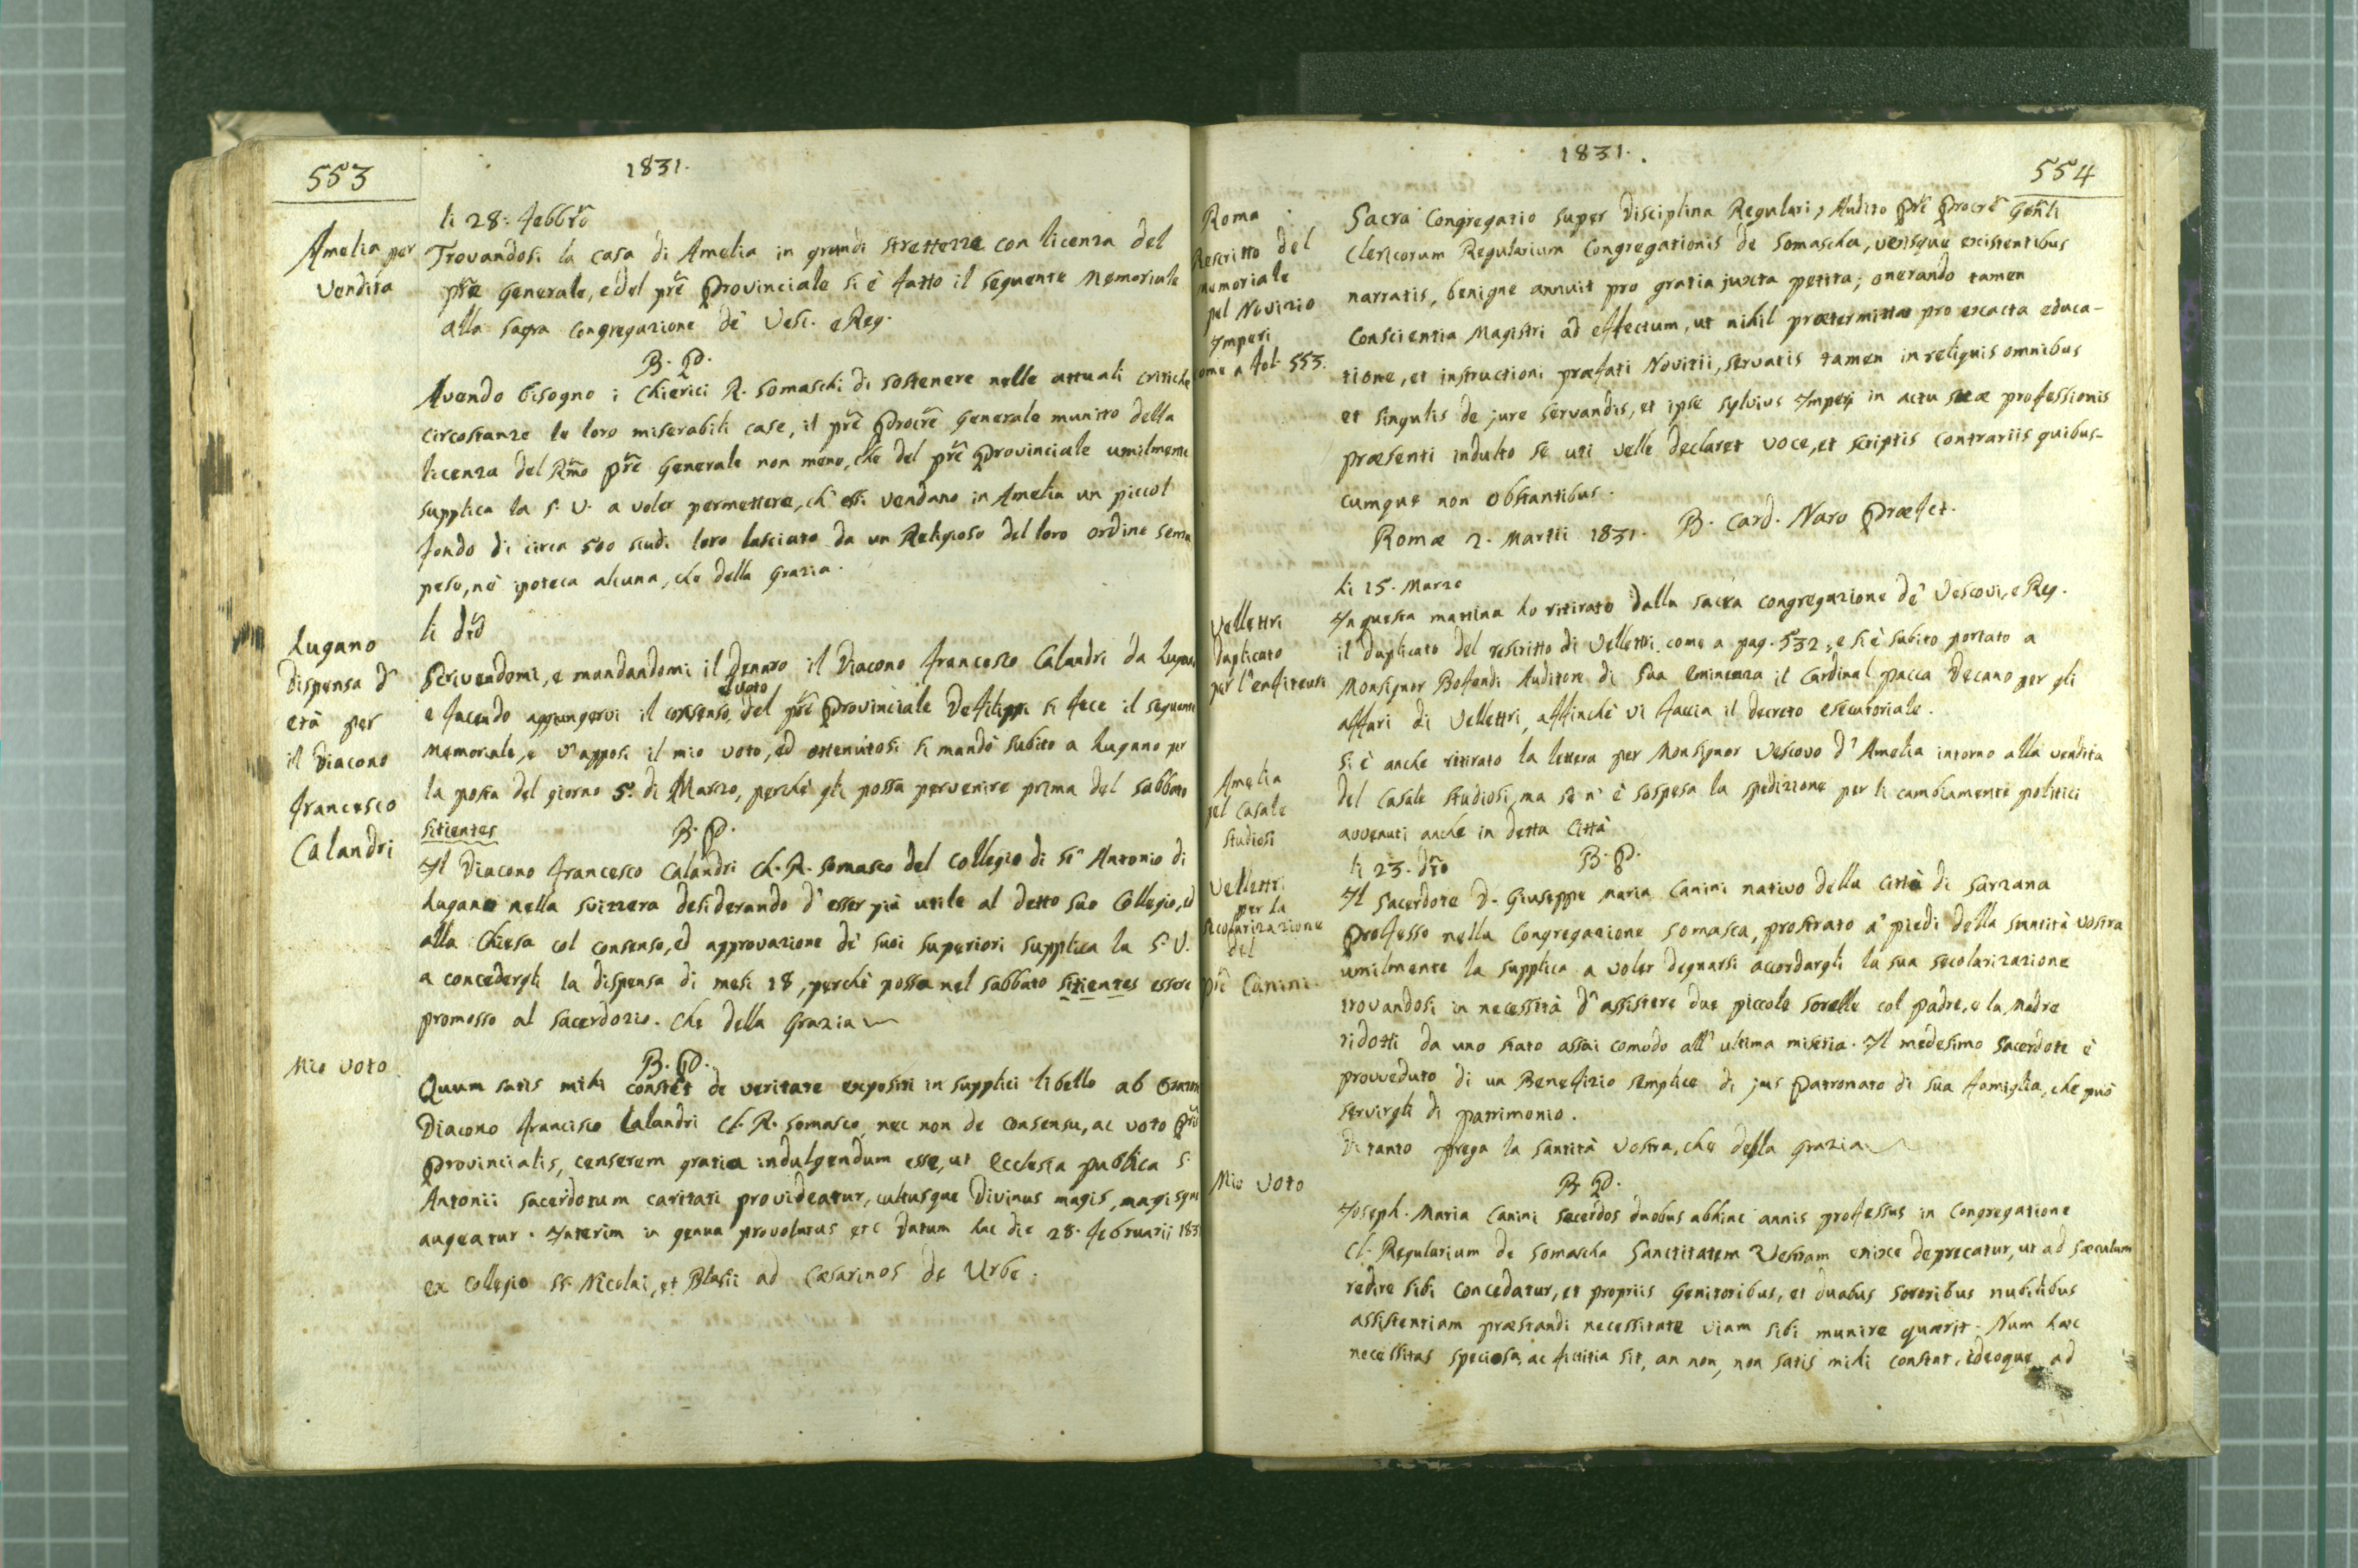 553
1831.
Amelia per
Vendita
li 28. febbro
Trovandosi la casa di Amelia in grandi strettezze con licenza del
pre Generale, e del pre Provinciale si è fatto il seguente Memoriale
alla sagra Congregazione de' Vesc. e Reg.
B. P.
Avendo bisogno i Chierici R. Somaschi di sostenere nelle attuali critiche
circostanze le loro miserabili case, il pre Procre Generale munito della
licenza del Rmo pre Generale non meno, che del pre Provinciale umilmente
supplica la S. V. a voler permettere, ch' essi vendano in Amelia un piccol
fondo di circa 500 scudi loro lasciato da un Religioso del loro ordine senza
peso, nè ipoteca alcuna, che della Grazia.
Lugano
Dispensa d'
età per
il Diacono
Francesco
Calandri
li dto
Scrivendomi, e mandandomi il denaro il Diacono Francesco Calandri da Lugano
e facendo aggiungervi il consenso, e voto del pre Provinciale Defilippi si fece il seguente
Memoriale, e v' apposi il mio voto, ed ottenutosi si mandò subito a Lugano per
la posta del giorno 5. di Marzo, perchè gli possa pervenire prima del sabbato
sitientes
B. P.
Il Diacono Francesco Calandri Ch. R. Somasco del Collegio di St Antonio di
Lugano nella Svizzera desiderando d' esser più utile al detto suo Collegio, ed
alla Chiesa col consenso, ed approvazione de' suoi superiori supplica la S. V.
a concedergli la dispensa di mesi 18, perchè possa nel sabbato sitientes essere
promosso al sacerdozio. Che della Grazia
Mio voto
B. P.
Quum satis mihi constet de veritate expositi in supplici libello ab
Diacono Francisco Calandri Cl. R. Somasco, nec non de consensu, ac voto Pris
Provincialis, censerem gratia indulgendum esse, ut Ecclesia publica S.
Antonii sacerdotum caritati provideatur, cultusque Divinus magis, magisque
augeatur. Interim in genua provolutus etc Datum hac die 28. februarii 183
ex Collegio SS. Nicolai, et Blasii ad Caesarinos de Urbe.
1831.
554
Roma
Rescritto del
memoriale
pel Novizio
Imperi
come a fol. 553.
Sacra Congregatio super Disciplina Regulari, Audito Pre Procre Genli
Clericorum Regularium Congregationis de Somascha, verisque existentibus
narratis, benigne annuit pro gratia juxta petita; onerando tamen
Conscientia Magistri ad effectum, ut nihil praetermittat pro exacta educa-
tione, et instructioni praefati Novitii, servatis tamen in reliquis omnibus
et singulis de jure servandis, et ipse Sylvius Imperj in actu suae professionis
praesenti indulto se uti velle declaret voce, et scriptis contrariis quibus-
cumque non obstantibus.
Romae 2. Martii 1831. B. Card. Naro Praefct.
Vellettri
Duplicato
per l' enfiteusi
li 15. Marzo
In questa mattina ho ritirato dalla sacra congregazione de' Vescovi, e Reg.
il duplicato del rescritto di Vellettri come a pag. 532, e si è subito portato a
Monsignor Bofondi Auditore di Sua Eminenza il Cardinal Pacca Decano per gli
affari di Vellettri, affinchè vi faccia il decreto esecutoriale.
Amelia
pel Casale
Studiosi
Si è anche ritirato la lettera per Monsignor Vescovo d' Amelia intorno alla vendita
del Casale Studiosi, ma se n' è sospesa la spedizione per li cambiamenti politici
avvenuti anche in detta Città
Vellettri
per la
secolarizazione
del
Pre Canini.
li 23. dto
B. P.
Il Sacerdote D. Giuseppe Maria Canini nativo della Città di Sarzana
Professo nella Congregazione Somasca, prostrato a' piedi della Santità Vostra
umilmente la supplica a voler degnarsi accordargli la sua secolarizazione
trovandosi in necessità d' assistere due piccole sorelle col Padre, e la Madre
ridotti da uno stato assai comodo all' ultima miseria. Il medesimo Sacerdote è
provveduto di un Benefizio semplice di jus Patronato di sua famiglia, che può
servirgli di patrimonio.
Di tanto prega la Santità Vostra, che della Grazia
Mio Voto
B. P.
Joseph. Maria Canini sacerdos duobus abhinc annis professus in Congregatione
Cl. Regularium de Somascha Sanctitatem Vestram enixe deprecatur, ut ad saeculum
redire sibi concedatur, et propriis Genitoribus, et duabus sororibus nubilibus
assistentiam praestandi necessitate viam sibi munire quaerit. Num haec
necessitas speciosa, ac fictitia sit, an non, non satis mihi constat, ideoque ad